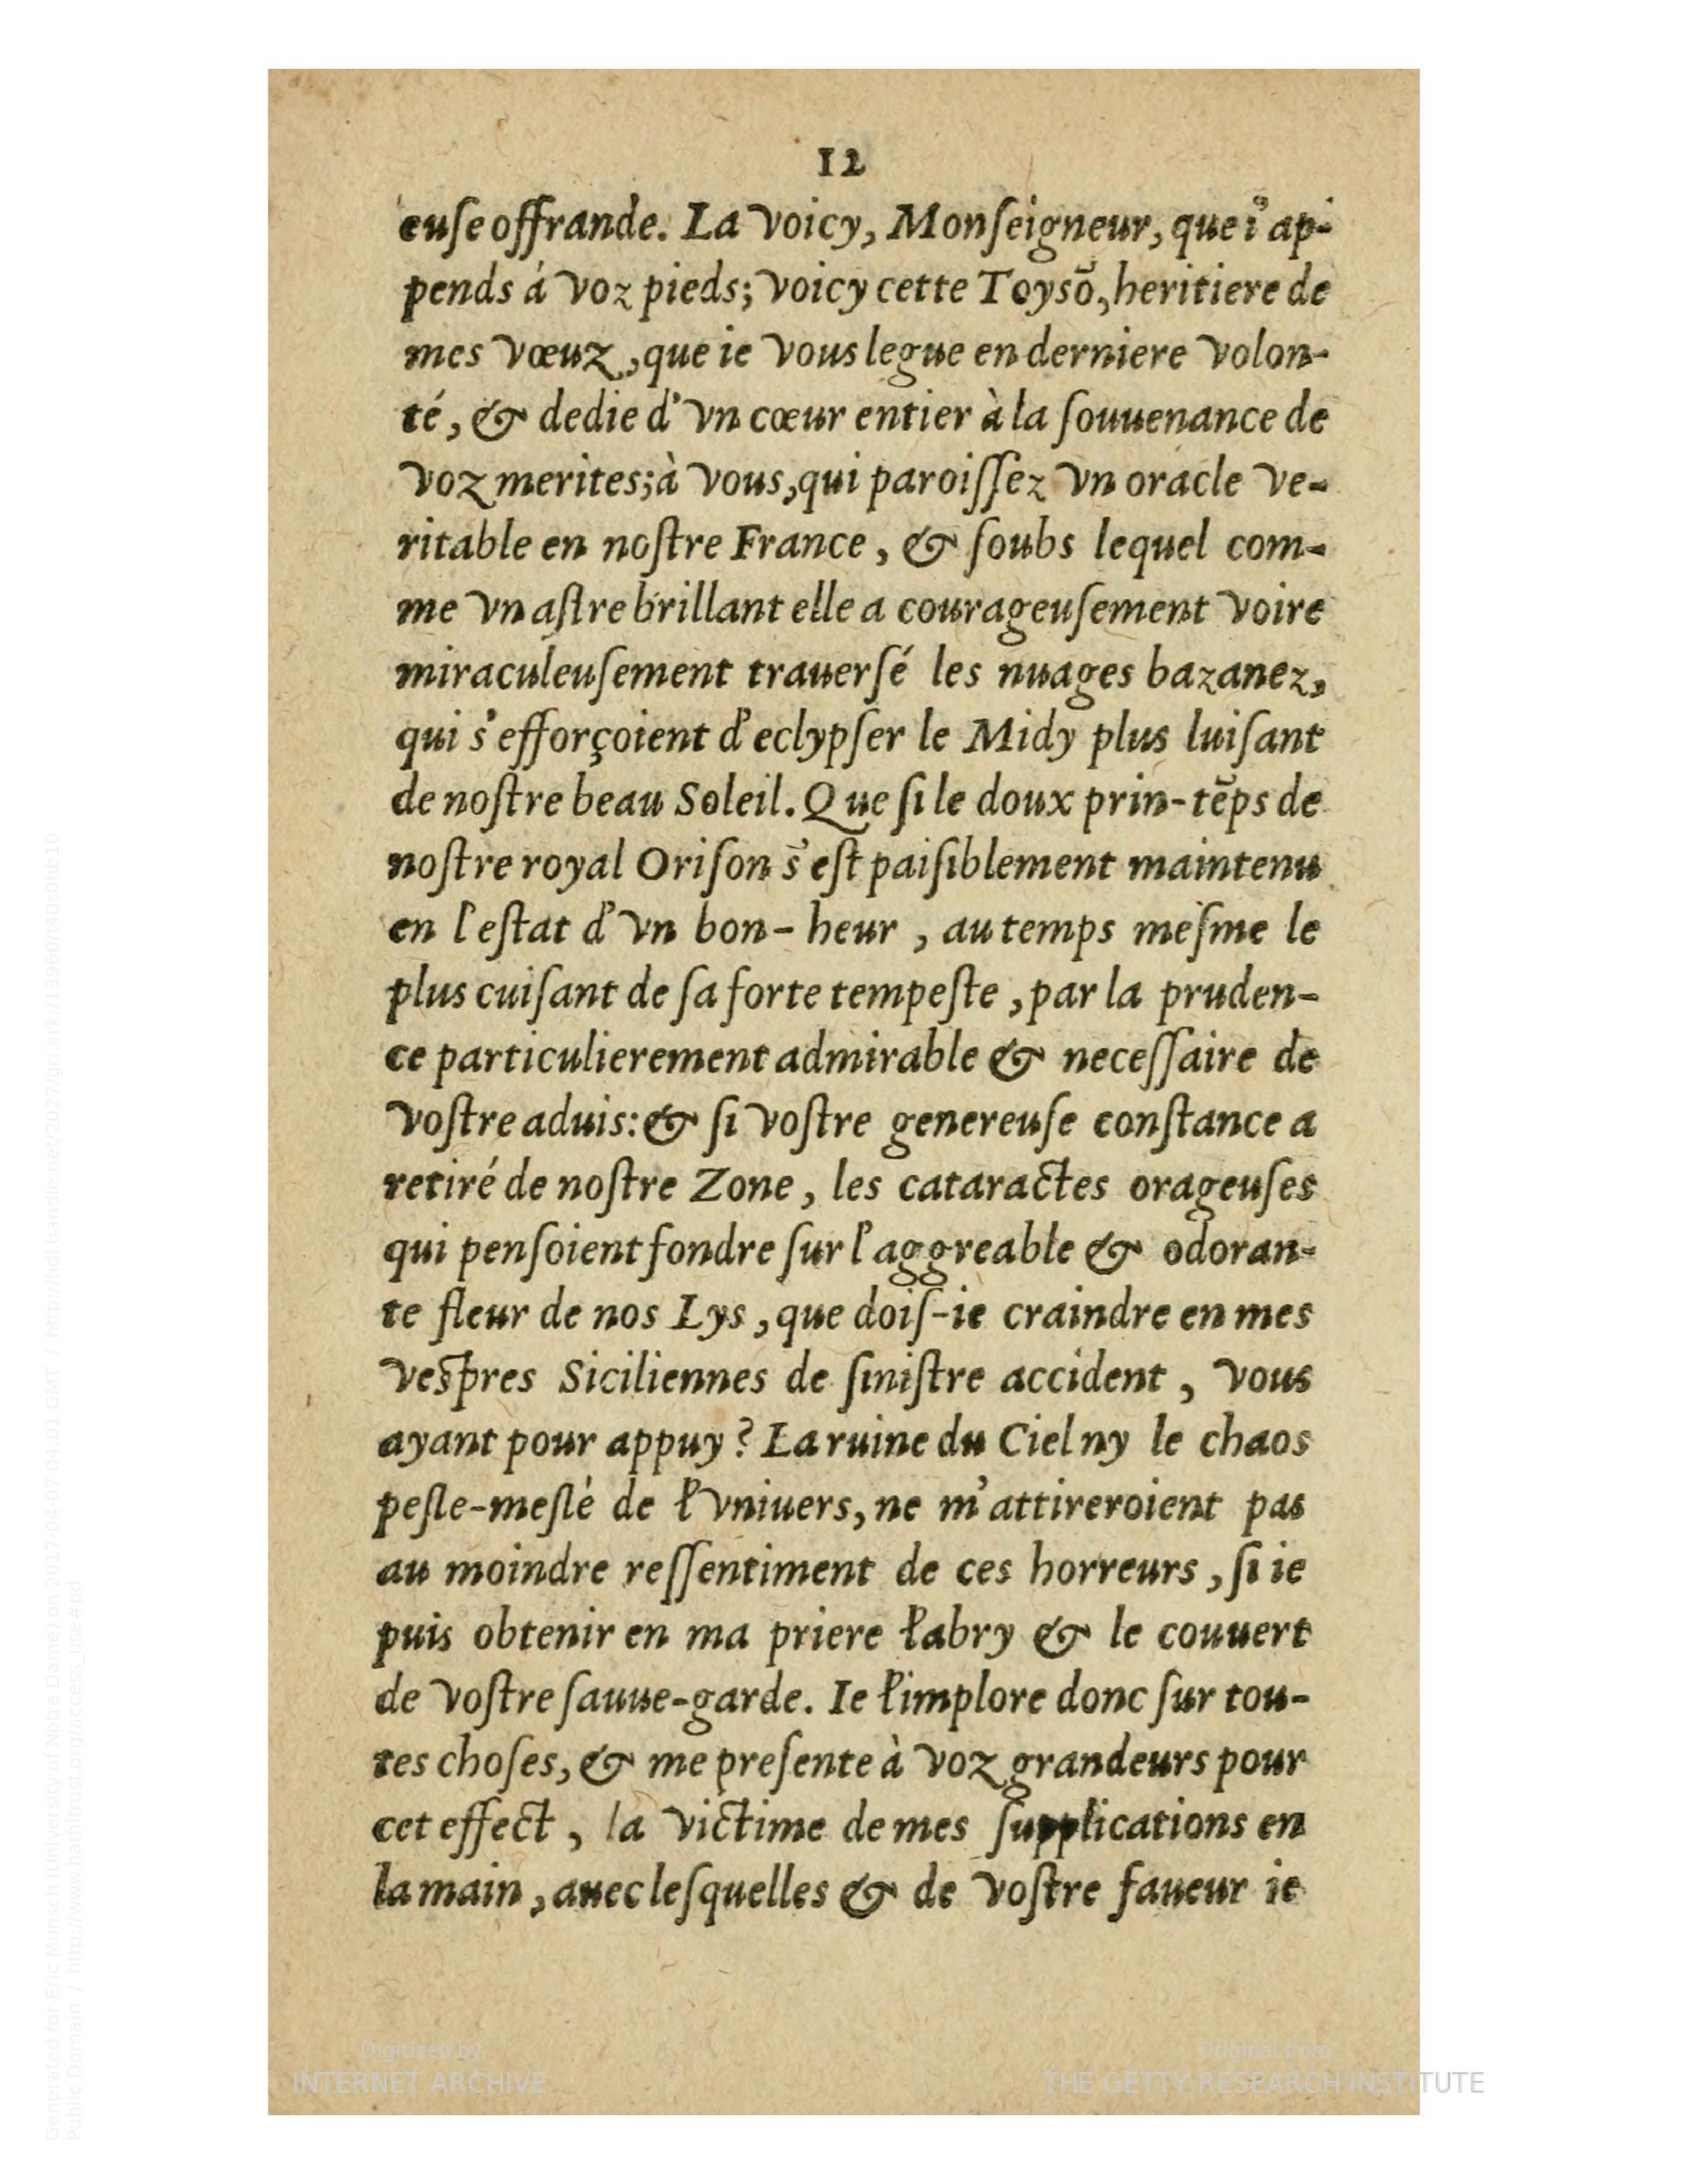 12
euſe offrande. La voicy, Monſeigneur, que i'ap-
pends à voz pieds; voicy cette Toysō, heritiere de
mes vœuz, que ie vous legue en derniere volon-
té, & dedie d'vn cœur entier à la ſouuenance de
voz merites; à vous, qui paroiſſez vn oracle ve-
ritable en noſtre France, & ſoubs lequel com-
me vn aſtre brillant elle a courageuſement voire
miraculeuſement trauerſé les nuages bazanez,
qui s'efforçoient d'eclypſer le Midy plus luiſant
de noſtre beau Soleil. Que ſi le doux prin-tēps de
noſtre royal Oriſon s'eſt paiſiblement maintenu
en l'eſtat d'vn bon-heur, au temps meſme le
plus cuiſant de ſa forte tempeſte, par la pruden-
ce particulierement admirable & neceſſaire de
voſtre aduis: & ſi voſtre genereuſe conſtance a
retiré de noſtre Zone, les cataractes orageuſes
qui penſoient fondre ſur l'aggreable & odoran-
te fleur de nos Lys, que doiſ-ie craindre en mes
veſpres Siciliennes de ſiniſtre accident, vous
ayant pour appuy? La ruine du Ciel ny le chaos
peſle-meſlé de l'vniuers, ne m'attireroient pas
au moindre reſſentiment de ces horreurs, ſi ie
puis obtenir en ma priere l'abry & le couuert
de voſtre ſauue-garde. Ie l'implore donc ſur tou-
tes choſes, & me preſente à voz grandeurs pour
cet effect, la victime de mes ſupplications en
la main, auec leſquelles & de voſtre faueur ie
Digitized by
INTERNET ARCHIVE
Original from
THE GETTY RESEARCH INSTITUTE